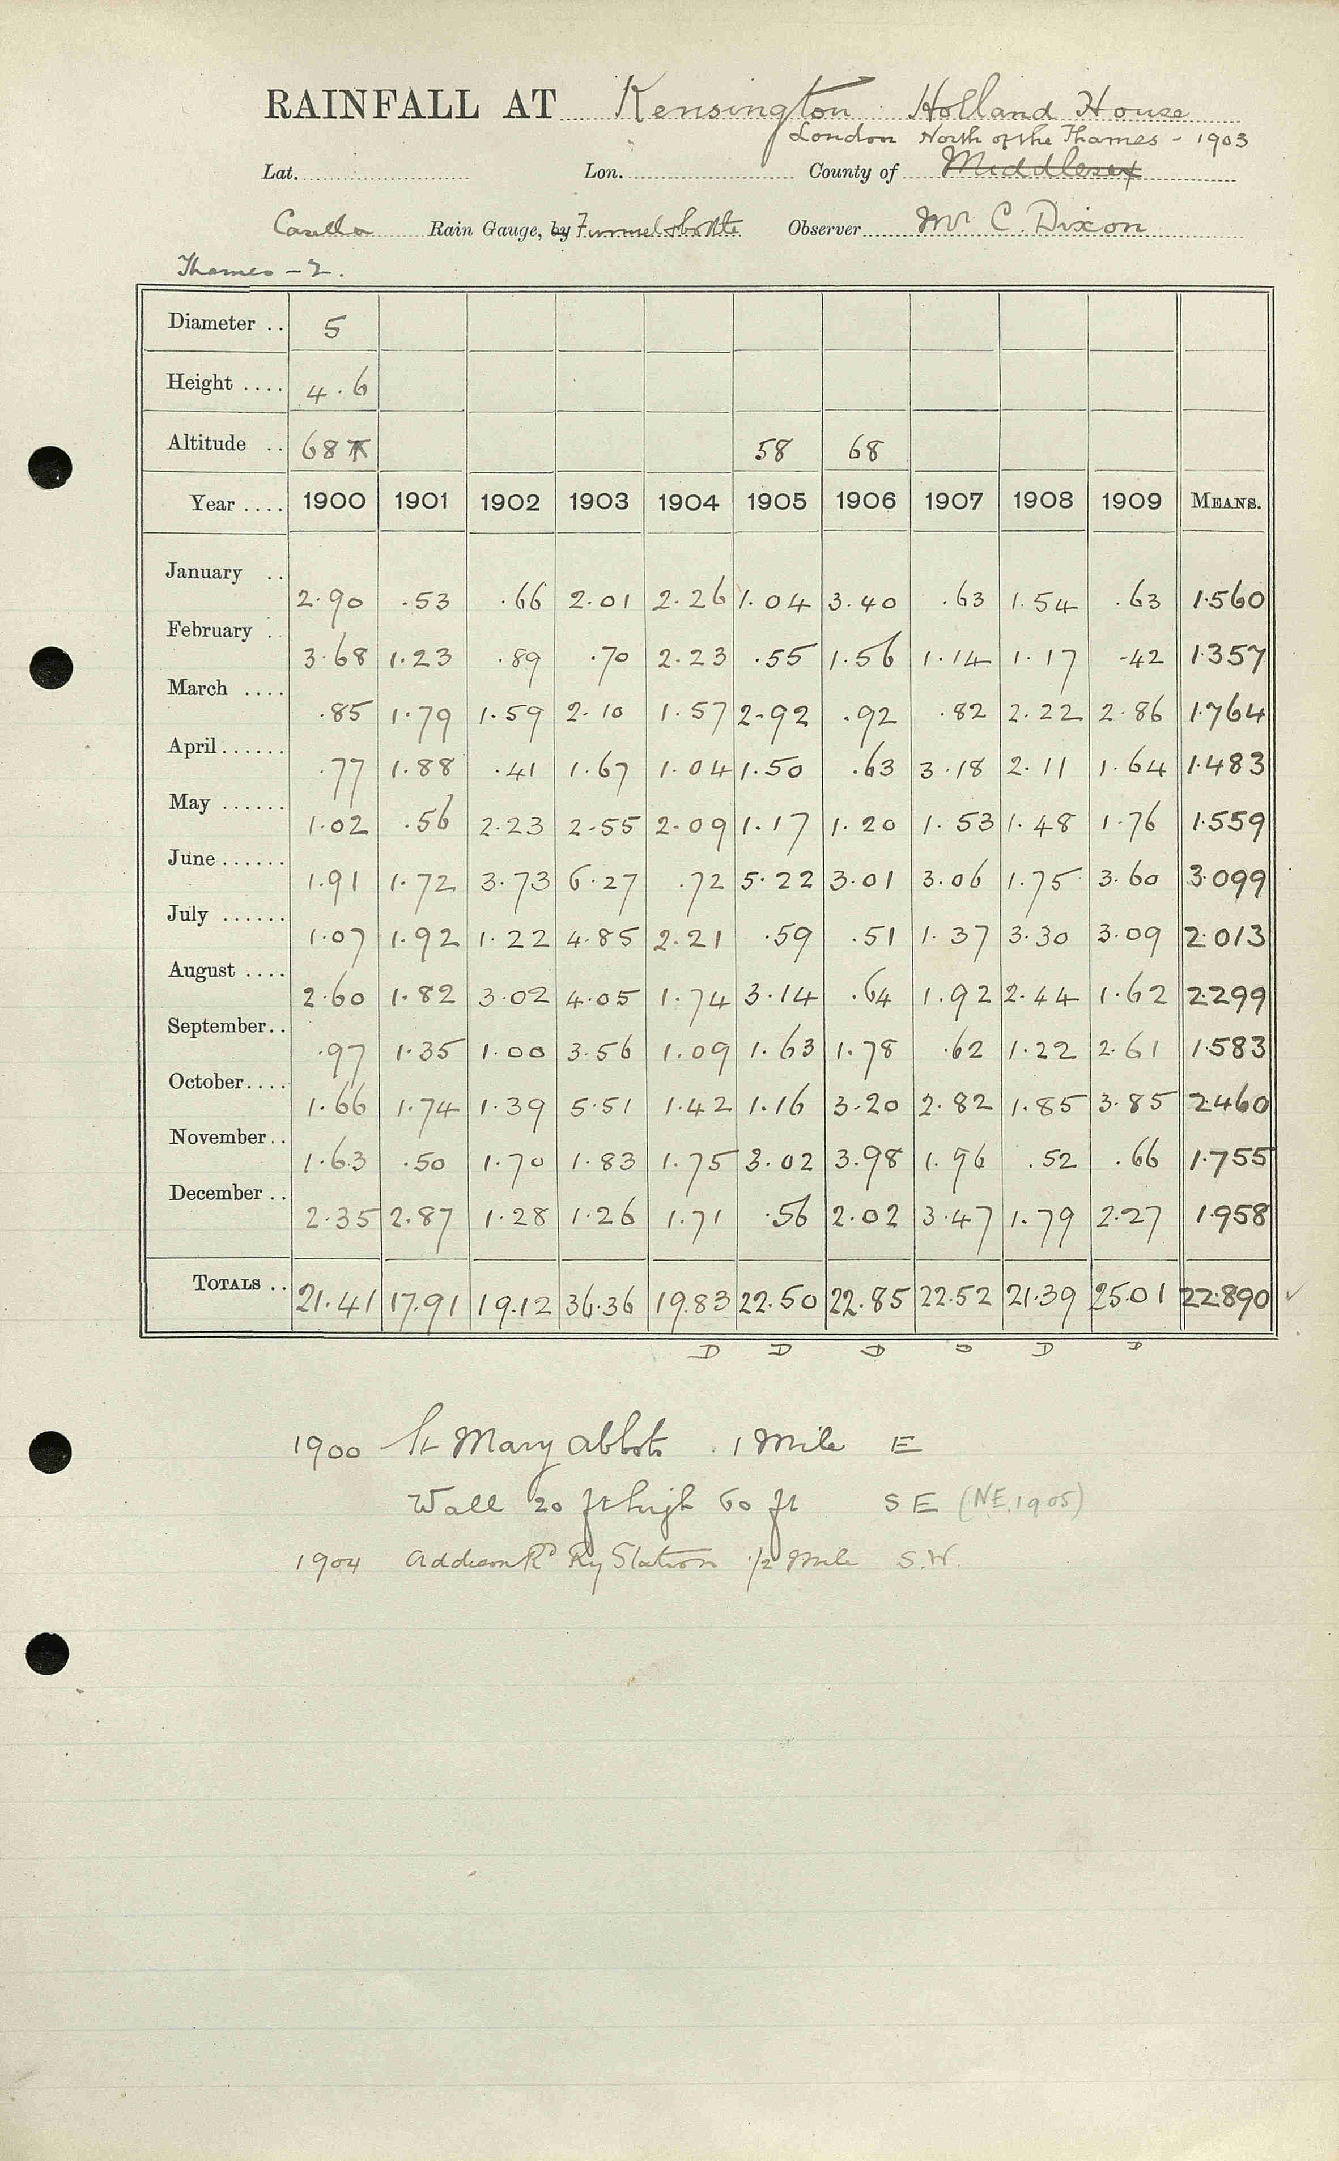 RAINFALL AT Kensington Holland House
London North of the Thames - 1903
Lat. Lon. County of Middlesex
Casella Rain Gauge, by Funnel & bottle Observer Mr C. Dixon
Thames - 2.
Diameter .. 5
Height .... 4.6
Altitude .. 68 58 68
Year .... 1900 1901 1902 1903 1904 1905 1906 1907 1908 1909 MEANS.
January .. 2.90 .53 .66 2.01 2.26 1.04 3.40 .63 1.54 .63 1.560
February .. 3.68 1.23 .89 .70 2.23 .55 1.56 1.14 1.17 .42 1.357
March .... .85 1.79 1.59 2.10 1.57 2.92 .92 .82 2.22 2.86 1.764
April ...... .77 1.88 .41 1.67 1.04 1.50 .63 3.18 2.11 1.64 1.483
May ...... 1.02 .56 2.23 2.55 2.09 1.17 1.20 1.53 1.48 1.76 1.559
June ...... 1.91 1.72 3.73 6.27 .72 5.22 3.01 3.06 1.75 3.60 3.099
July ...... 1.07 1.92 1.22 4.85 2.21 .59 .51 1.37 3.30 3.09 2.013
August .... 2.60 1.82 3.02 4.05 1.74 3.14 .64 1.92 2.44 1.62 2.299
September .. .97 1.35 1.00 3.56 1.09 1.63 1.78 .62 1.22 2.61 1.583
October .... 1.66 1.74 1.39 5.51 1.42 1.16 3.20 2.82 1.85 3.85 2.460
November .. 1.63 .50 1.70 1.83 1.75 3.02 3.98 1.96 .52 .66 1.755
December .. 2.35 2.87 1.28 1.26 1.71 .56 2.02 3.47 1.79 2.27 1.958
TOTALS .. 21.41 17.91 19.12 36.36 19.83 22.50 22.85 22.52 21.39 25.01 22.890
D D D D D D
1900 St Mary Abbots . 1 Mile E
Wall 20 ft high 60 ft S E (NE. 1905)
1904 Addison Rd Ry Station 1/2 Mile S.W.